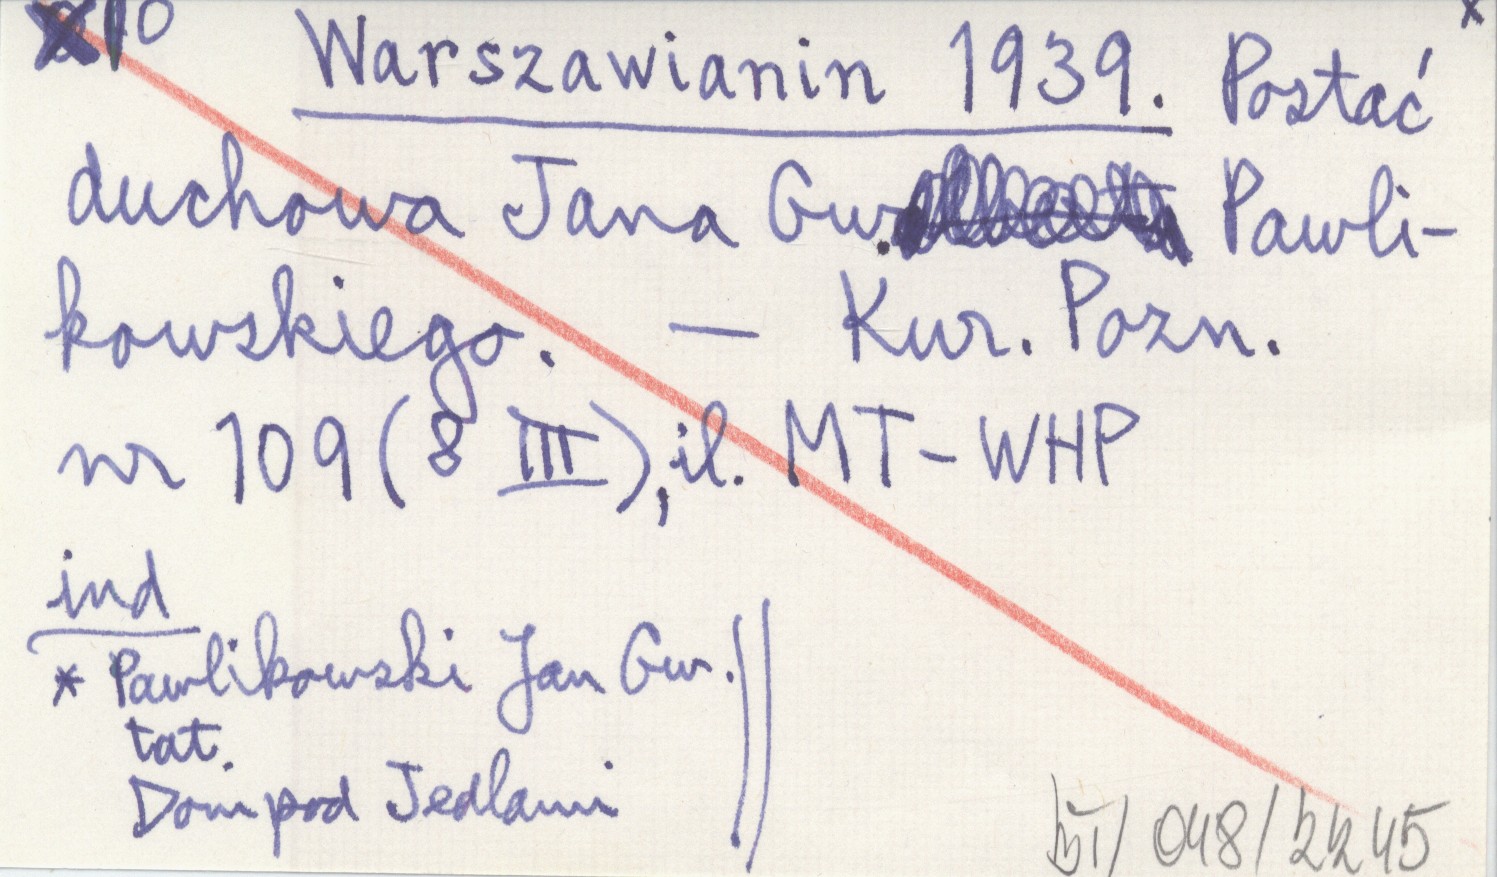 10 Warszawianin 1939. Postać x
duchowa Jana Gw. Pawli-
kowskiego. — Kur. Pozn.
nr 109 (8 III), il. MT-WHP
ind
* Pawlikowski Jan Gw.
tat.
Dom pod Jedlami
/048/2245